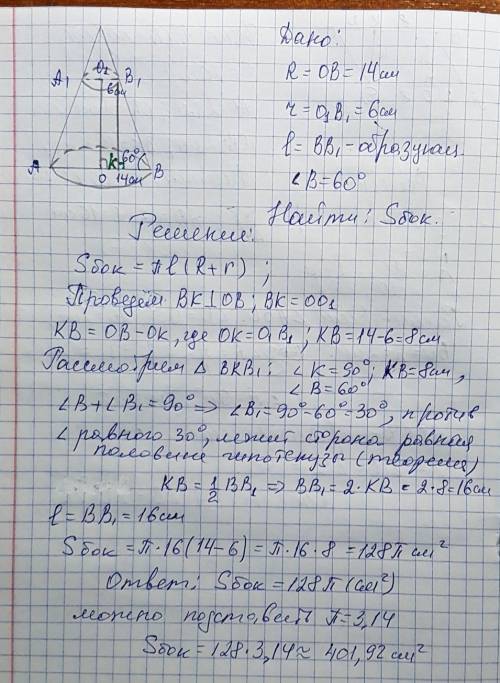 Дано:
R = OB = 14 см
r = O₁B₁ = 6 см
l = BB₁ – образующ.
∠B = 60°
Найти: Sбок.
O₁
A₁ B₁
6см
60°
A K B
O 14см
Решение:
Sбок = πl(R+r) ;
Проведём BK⊥OB; BK = OO₁
KB = OB – OK, где OK = O₁B₁; KB = 14–6 = 8 см.
Рассмотрим △ BKB₁: ∠K = 90°; KB = 8см,
∠B = 60°
∠B + ∠B₁ = 90° ⇒ ∠B₁ = 90° – 60° = 30°, против
∠ равного 30°, лежит сторона равная
половине гипотенузы (теорема)
KB = 1/2 BB₁ ⇒ BB₁ = 2·KB = 2·8 = 16см
l = BB₁ = 16 см
Sбок = π·16(14–6) = π·16·8 = 128π см²
Ответ: Sбок = 128π (см²)
можно подставить π = 3,14
Sбок = 128·3,14 ≈ 401,92 см²